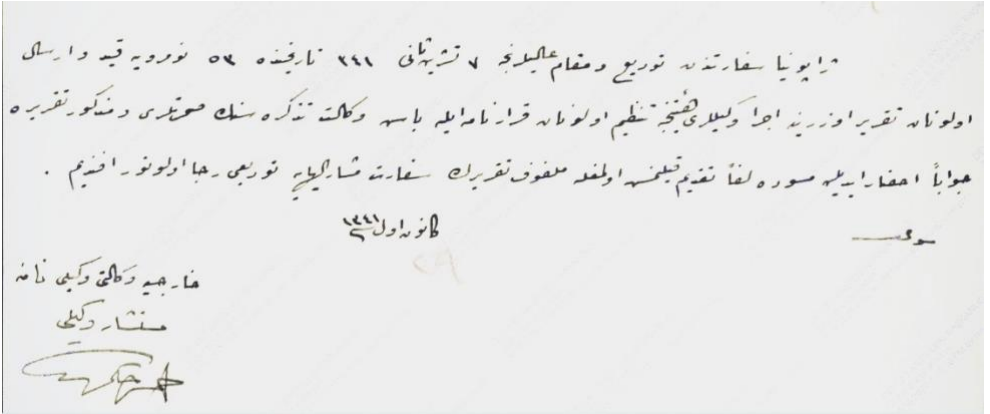 ژاپونيا سفارتندن توديع و مقام عاليلرنجه ٧ تشرين ثانى ٣٤١ تاريخنده ٥٣ نومرويه قيد و ارسال
اولونان تقرير اوزرينه اجرا وكيللرى هيئتنجه تنظيم اولونان قرارنامه ايله باش وكالت تذكره سنك صورتلرى و مذكور تقريره
جواباً احضار ايديلن مسوده لفاً تقديم قيلنمش اولمغله ملفوف تقريرك سفارت مشاراليهايه توديعى رجا اولونور افندم .
كانون اول ١٣٤١
خارجيه وكالتى وكيلى نامنه
مستشار وكيلى